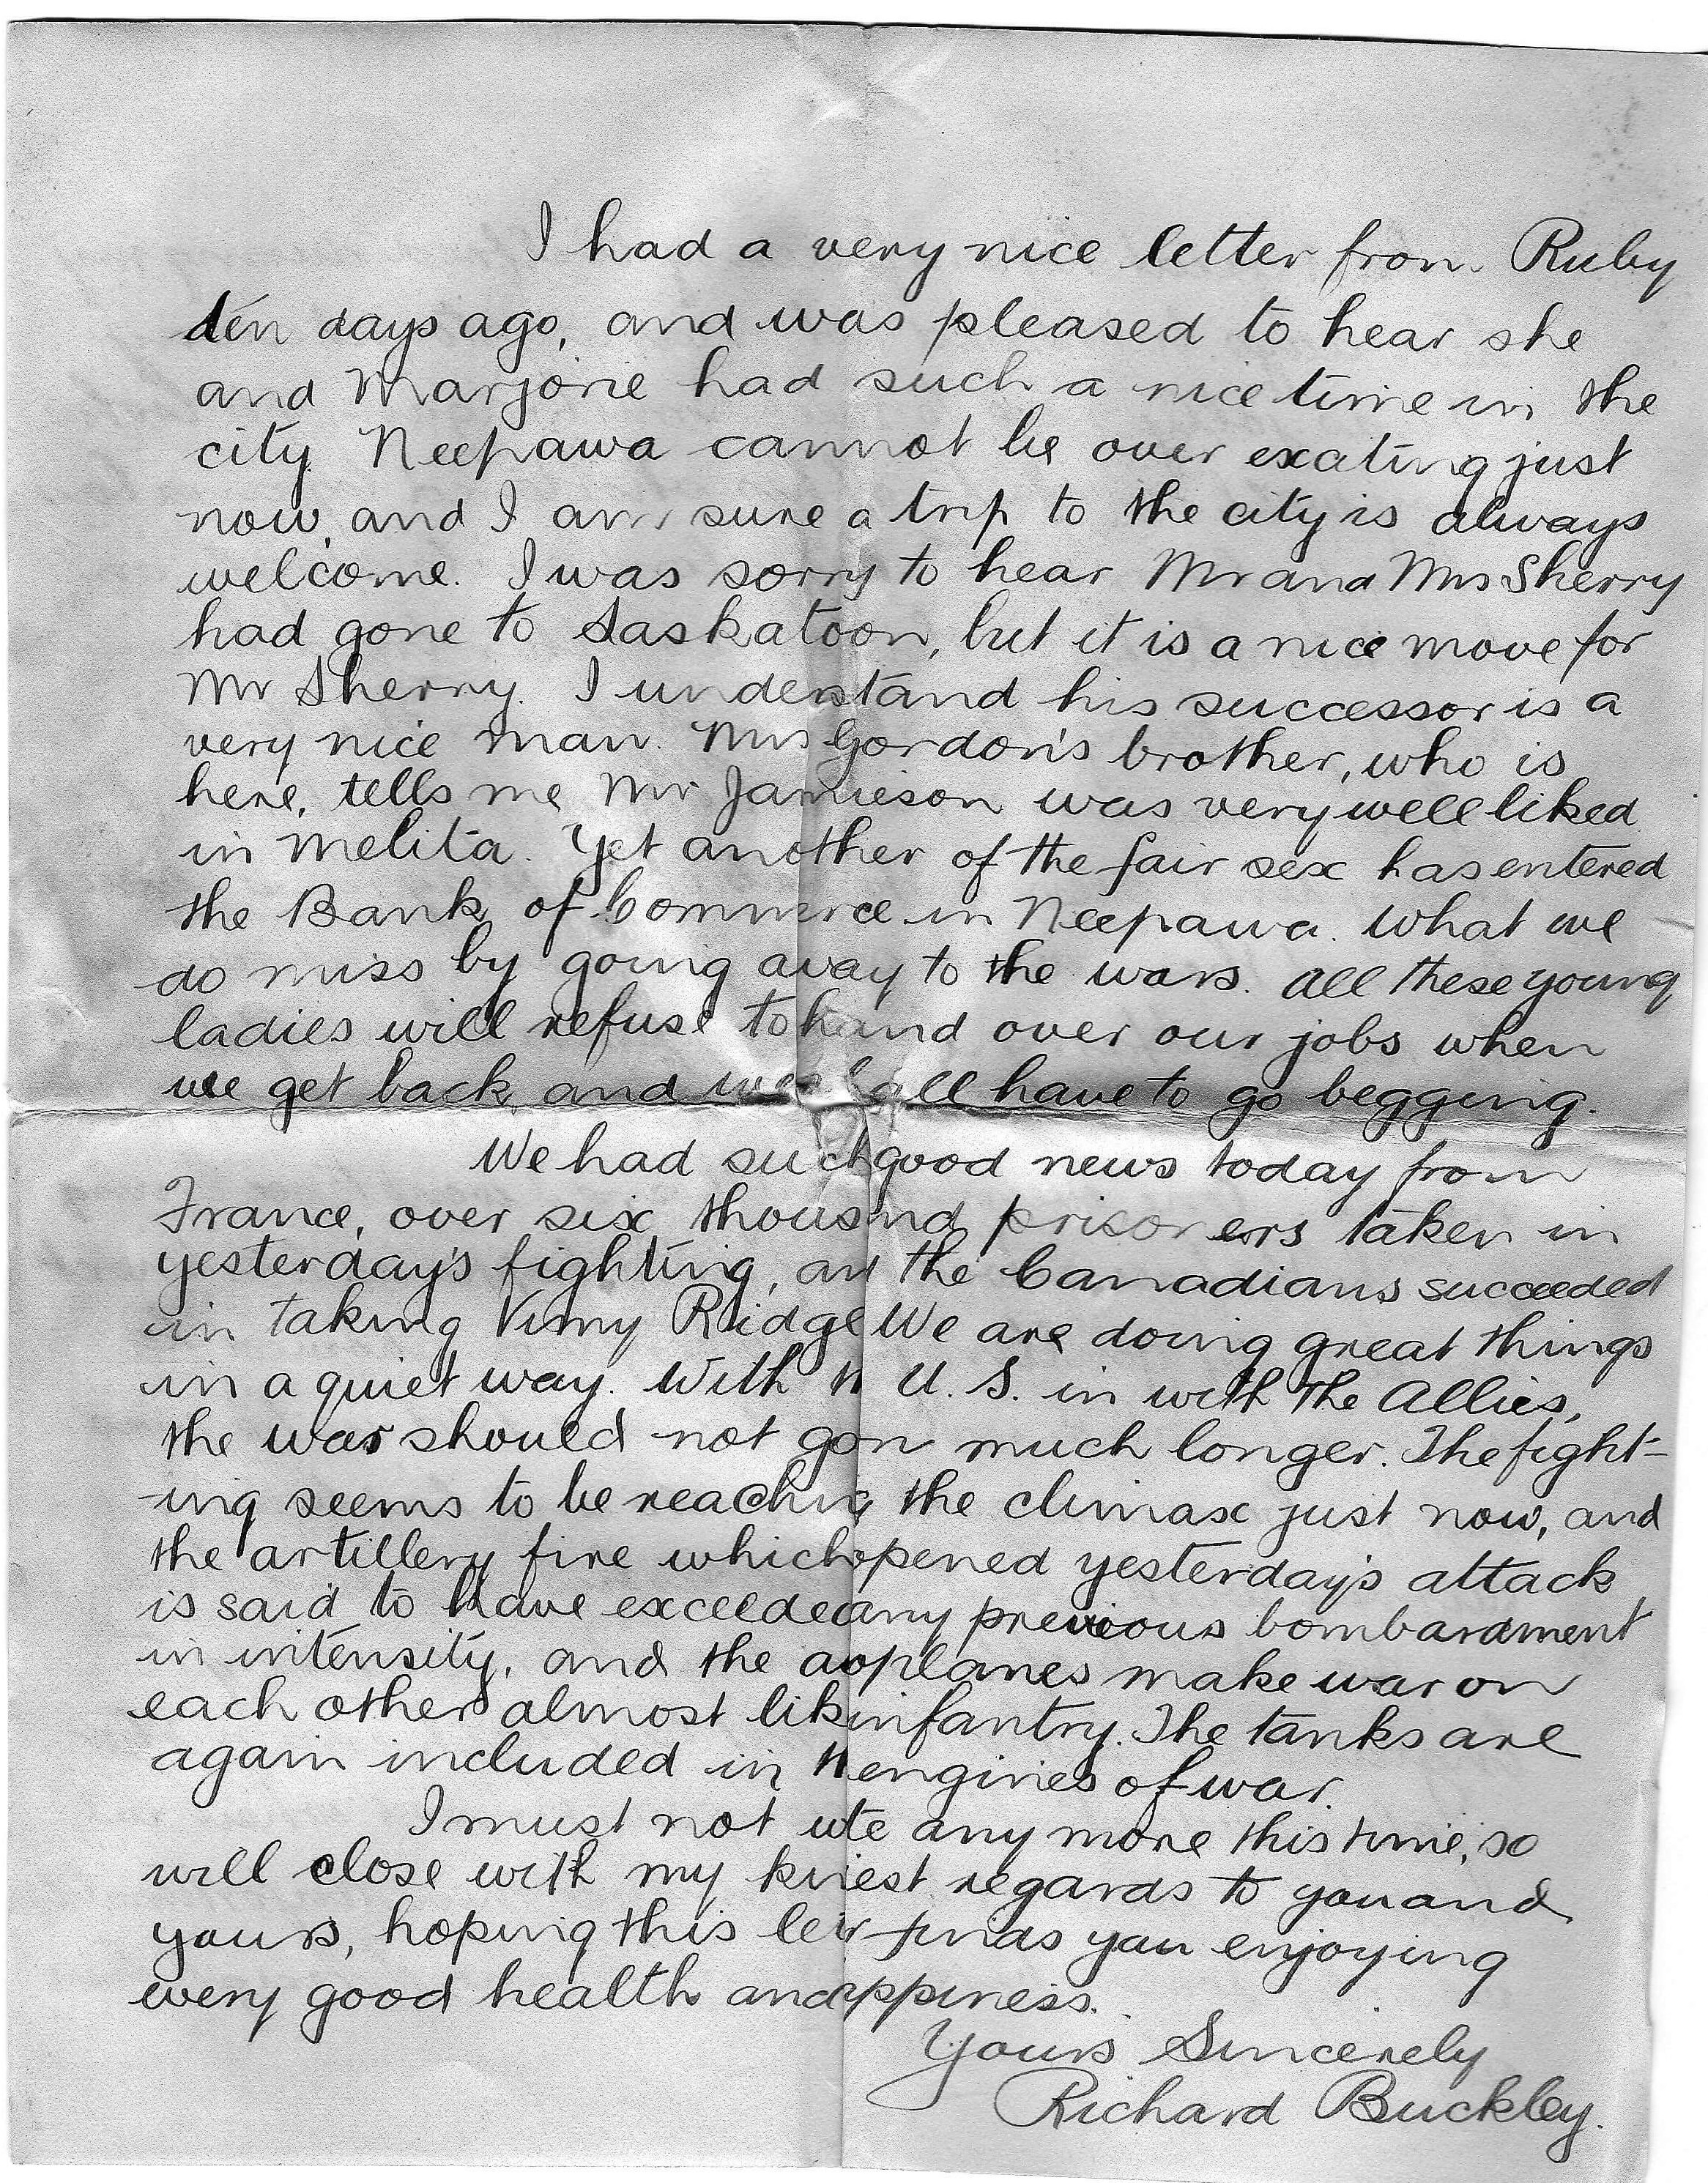 I had a very nice letter from Ruby
ten days ago, and was pleased to hear she
and Marjorie had such a nice time in the
city. Neepawa cannot be over exciting just
now, and I am sure a trip to the city is always
welcome. I was sorry to hear Mr and Mrs Sherry
had gone to Saskatoon, but it is a nice move for
Mr Sherry. I understand his successor is a
very nice man. Mrs Gordon's brother, who is
here, tells me Mr Jamieson was very well liked
in Melita. Yet another of the fair sex has entered
the Bank of Commerce in Neepawa. What we
do miss by going away to the wars. All these young
ladies will refuse to hand over our jobs when
we get back, and we shall have to go begging.
We had such good news today from
France, over six thousand prisoners taken in
yesterday's fighting, and the Canadians succeeded
in taking Vimy Ridge. We are doing great things
in a quiet way. With the U. S. in with the Allies,
the war should not go on much longer. The fight-
-ing seems to be reaching the climax just now, and
the artillery fire which opened yesterday's attack
is said to have exceeded any previous bombardment
in intensity, and the aeroplanes make war on
each other almost like infantry. The tanks are
again included in the engines of war.
I must not write any more this time, so
will close with my kindest regards to you and
yours, hoping this letter finds you enjoying
very good health and happiness.
Yours Sincerely
Richard Buckley.